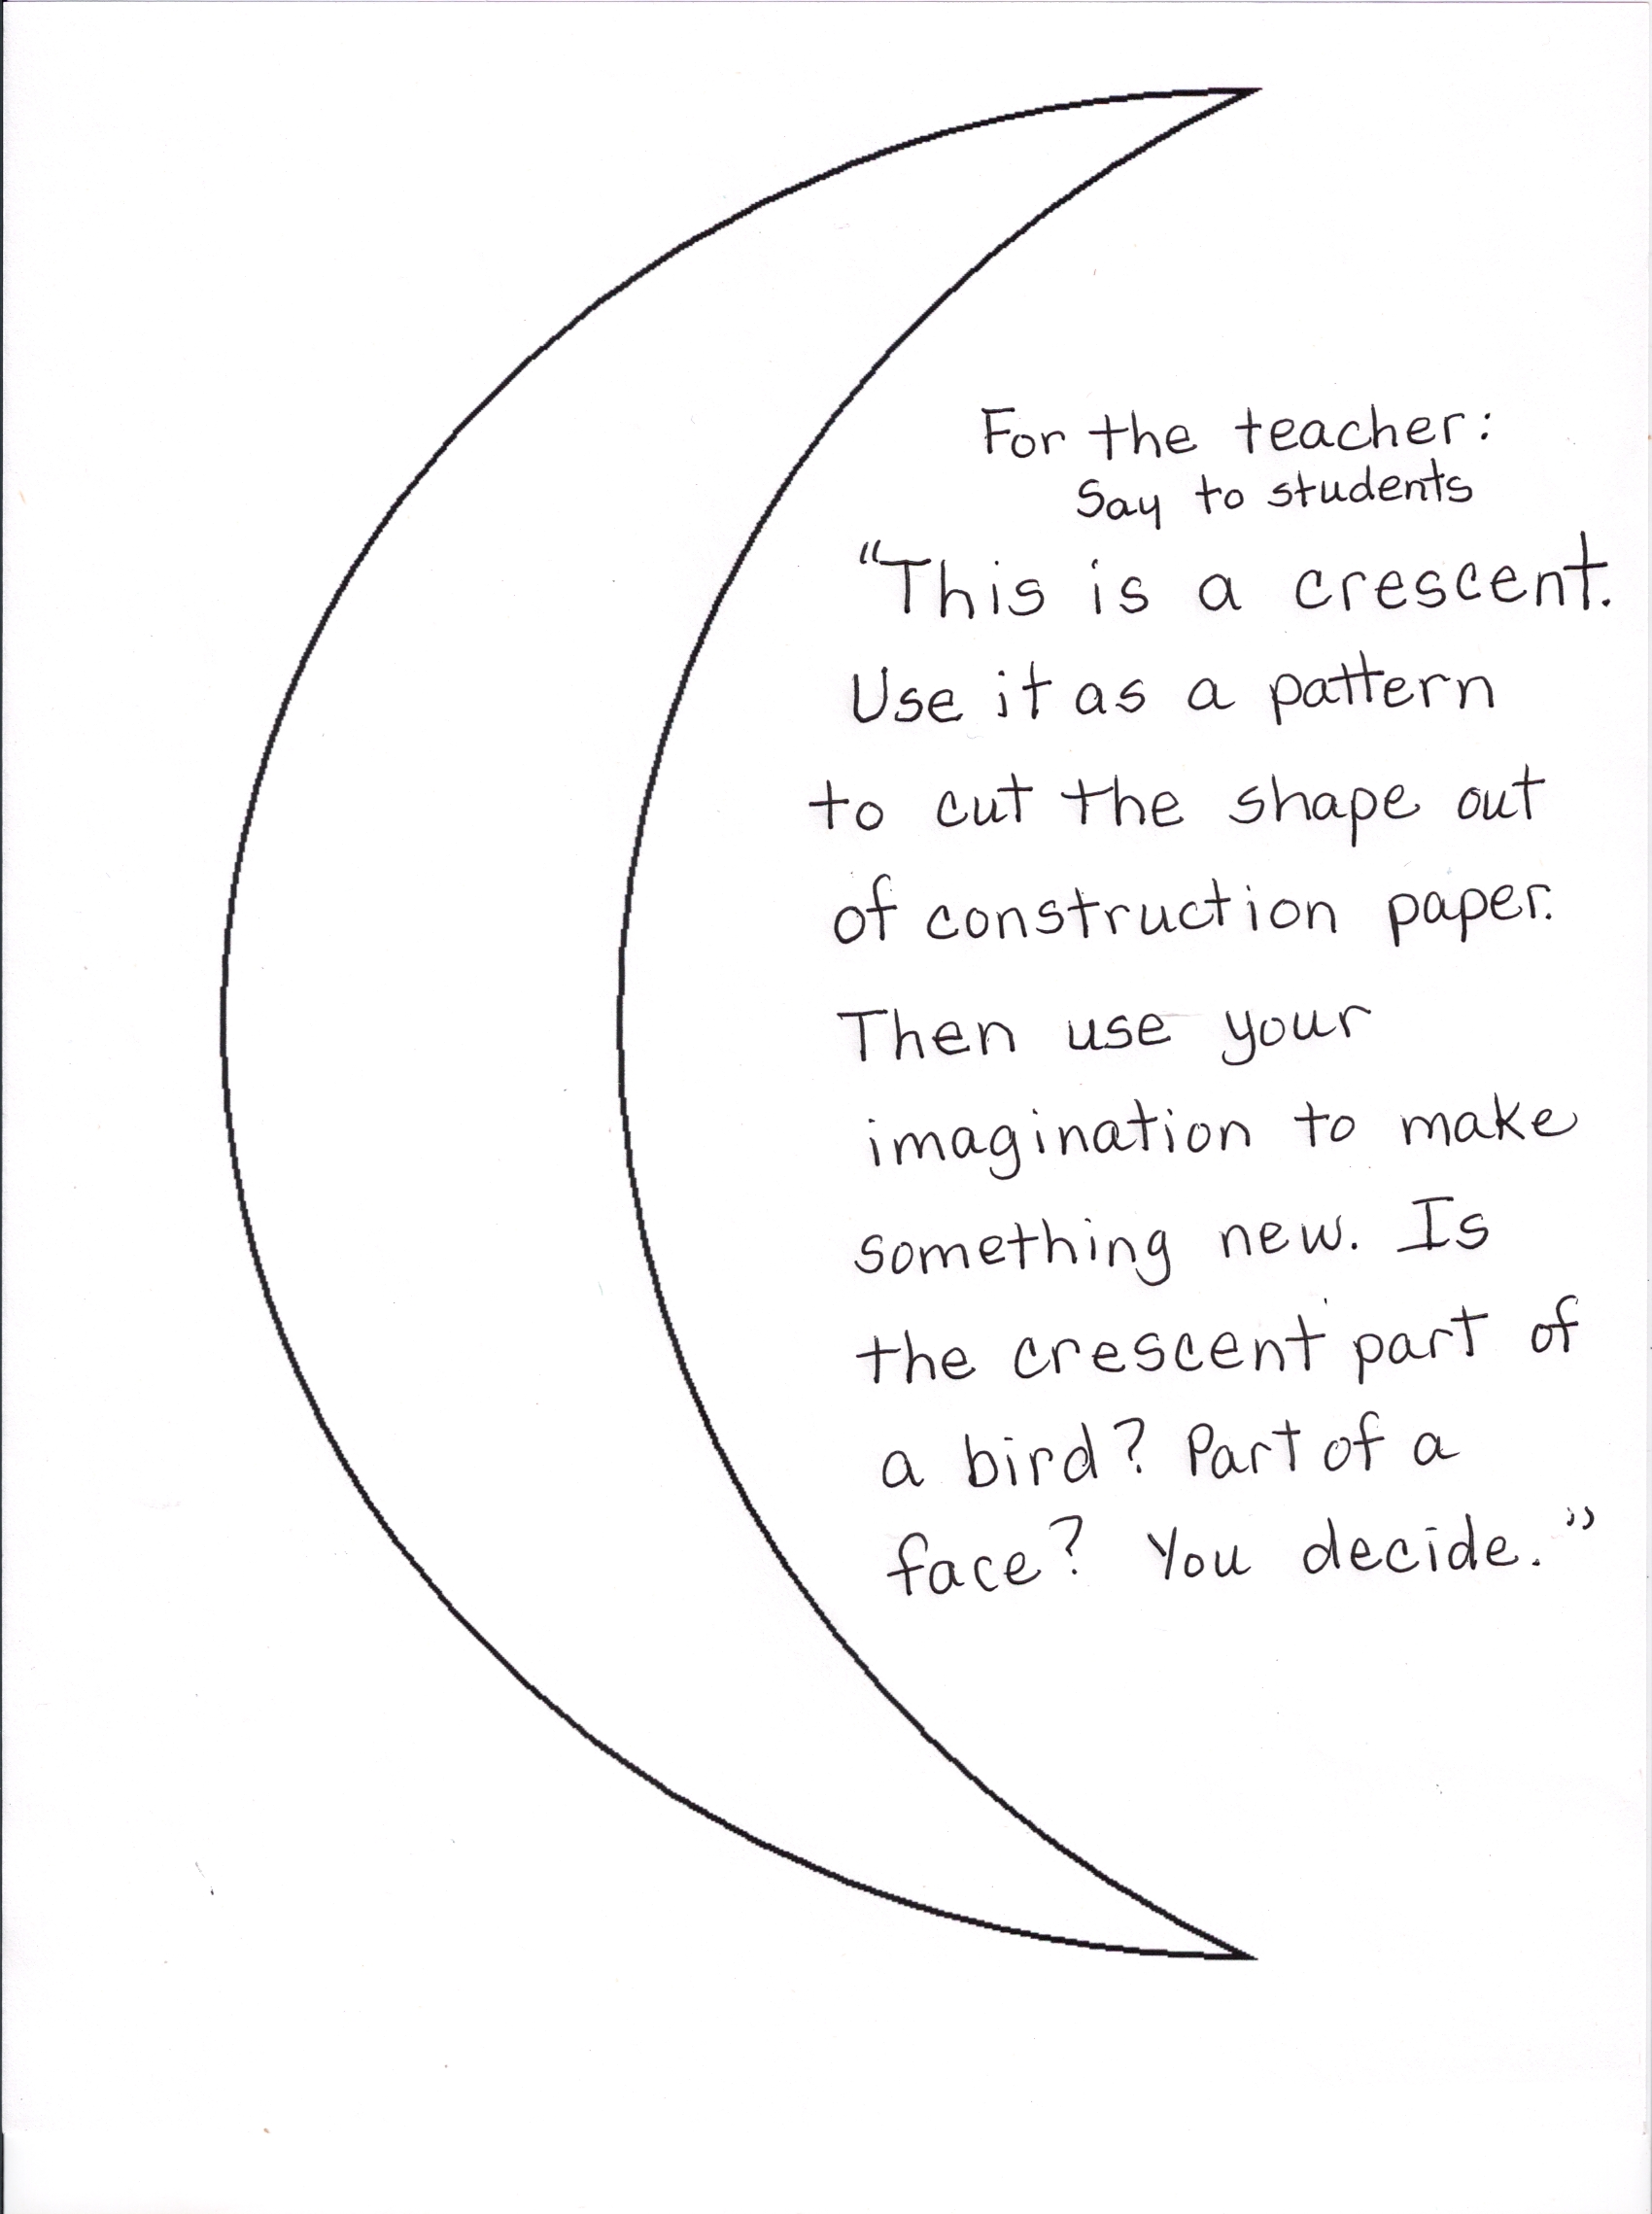 For the teacher:
Say to students
"This is a crescent.
Use it as a pattern
to cut the shape out
of construction paper.
Then use your
imagination to make
something new. Is
the crescent part of
a bird? Part of a
face? You decide."